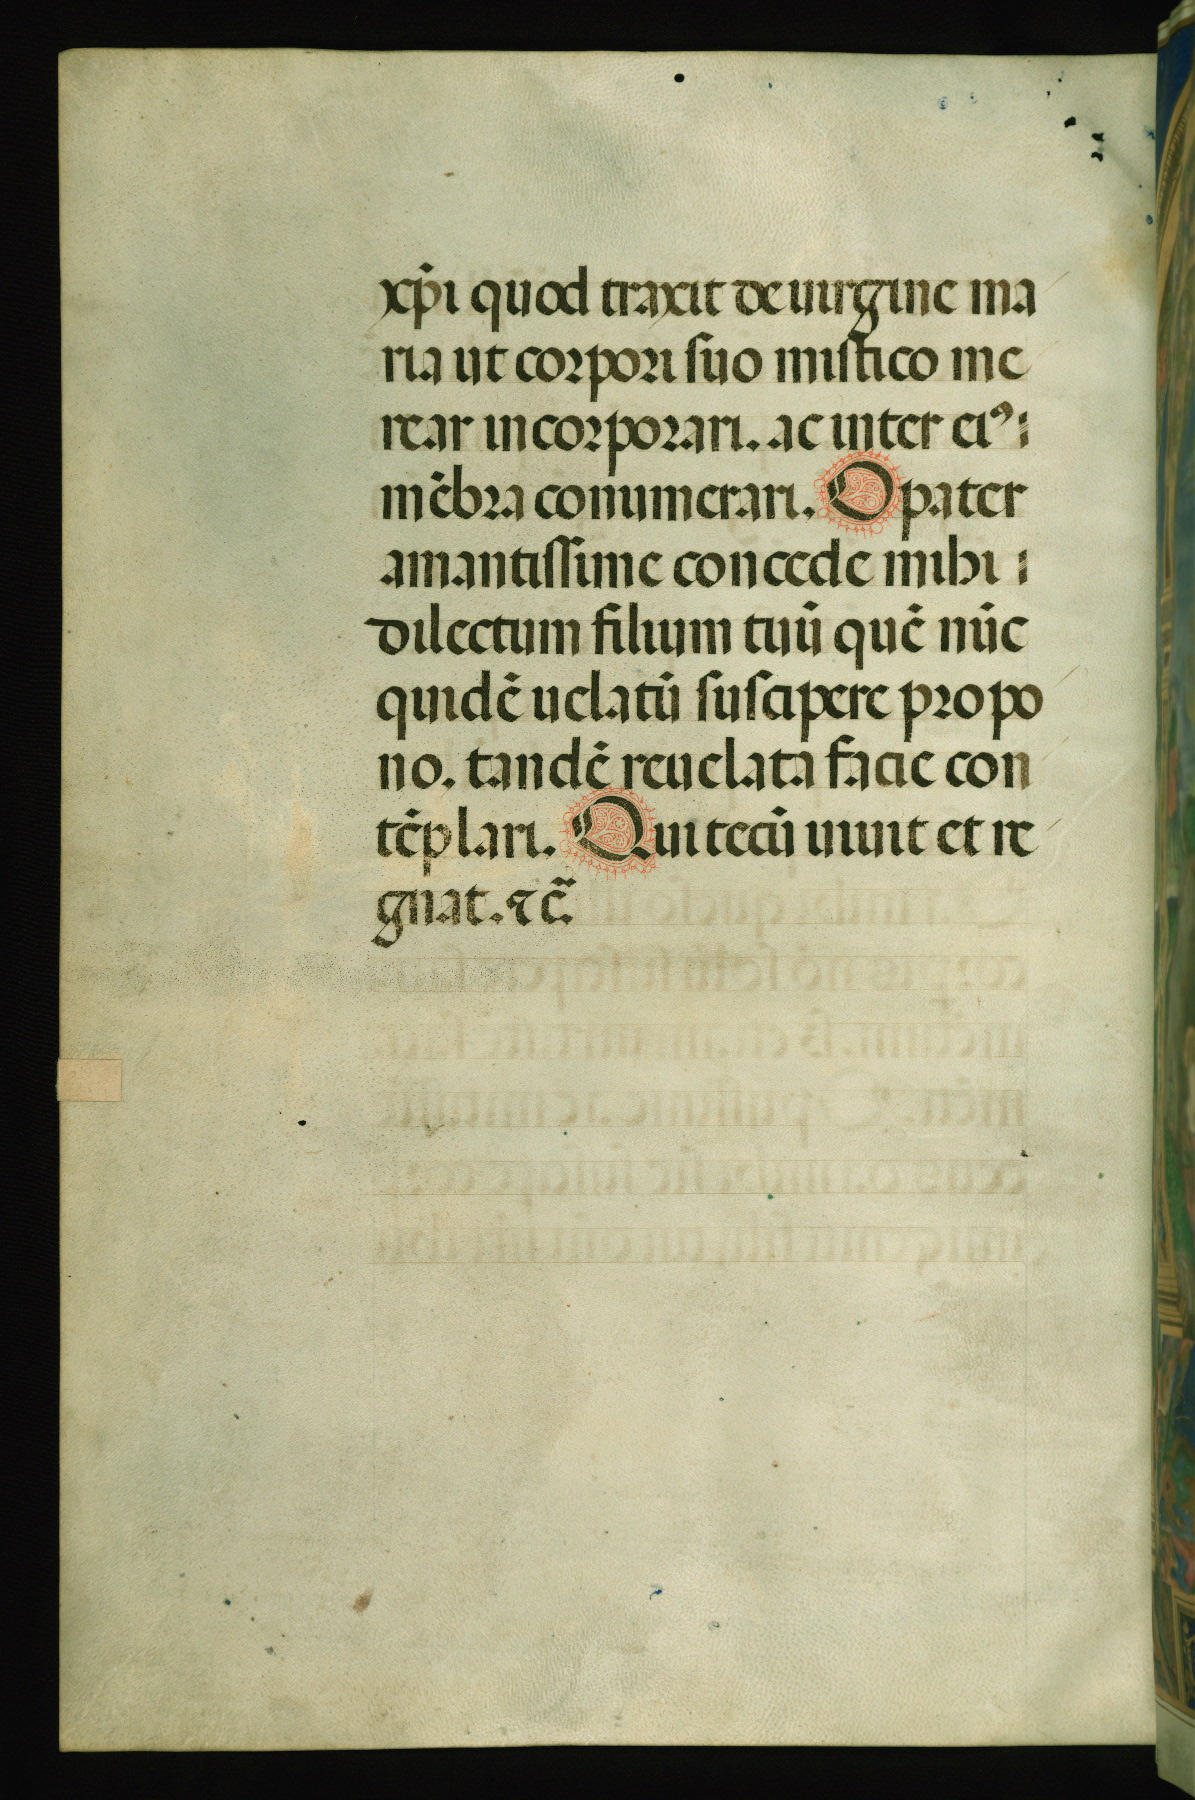 xp̄i quod traxit de uirgine ma
ria ut corpori suo mistico me
rear incorporari. ac inter eiꝰ
mēbra conumerari. O pater
amantissime concede mihi
dilectum filium tuū quē nūc
quidē uelatū suscipere propo
no. tandē reuelata facie con
tēplari. Qui tecū uiuit et re
gnat. ⁊ c̄.